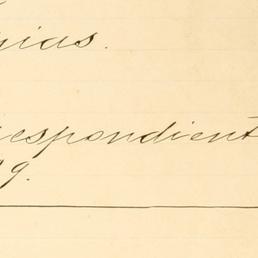 gias.
respondient
9.